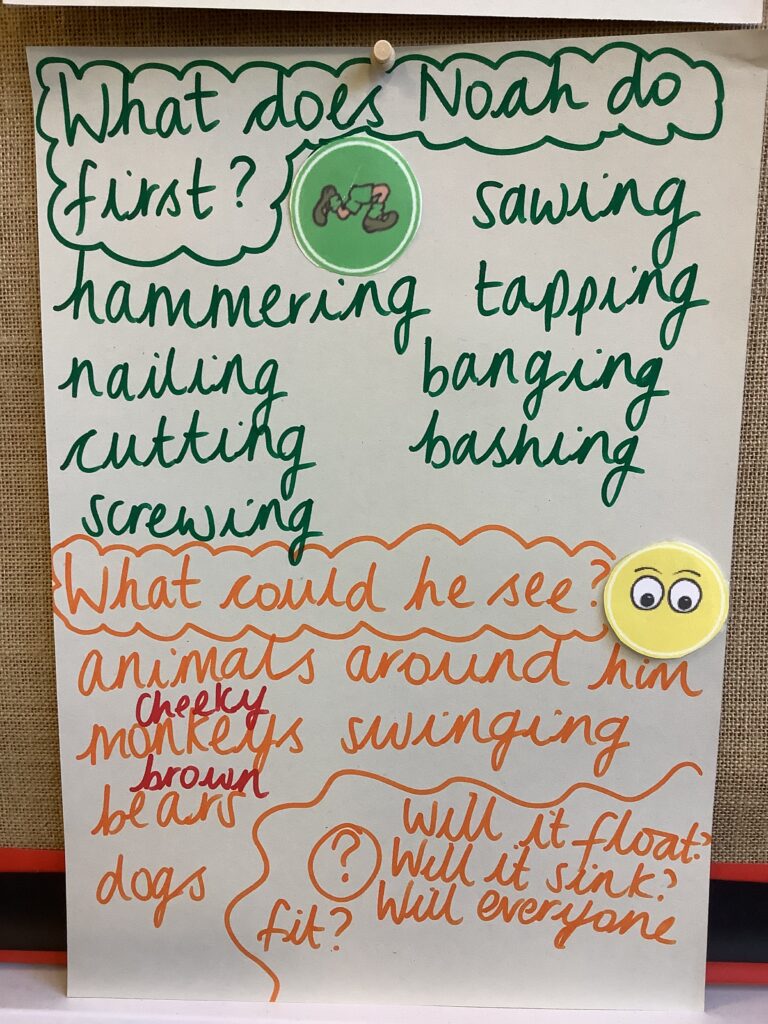 What does Noah do
first?
sawing
hammering tapping
nailing banging
cutting bashing
screwing
What could he see?
animals around him
cheeky
monkeys swinging
brown
bears
dogs
?
Will it float?
Will it sink?
Will everyone
fit?